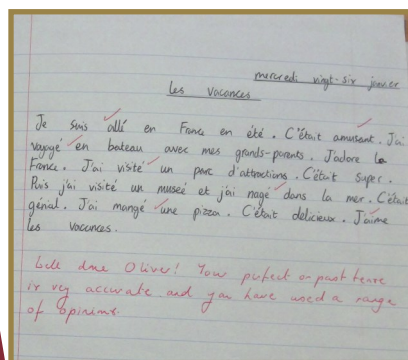 mercredi vingt-six janvier
les vacances
Je suis allé en France en été. C'était amusant. J'ai
voyagé en bateau avec mes grands-parents. J'adore la
France. J'ai visité un parc d'attractions. C'était super.
Puis j'ai visité un museé et j'ai nagé dans la mer. C'était
génial. J'ai mangé une pizza. C'était délicieux. J'aime
les vacances.
Well done Oliver! Your perfect or past tense
is very accurate and you have used a range
of opinions.